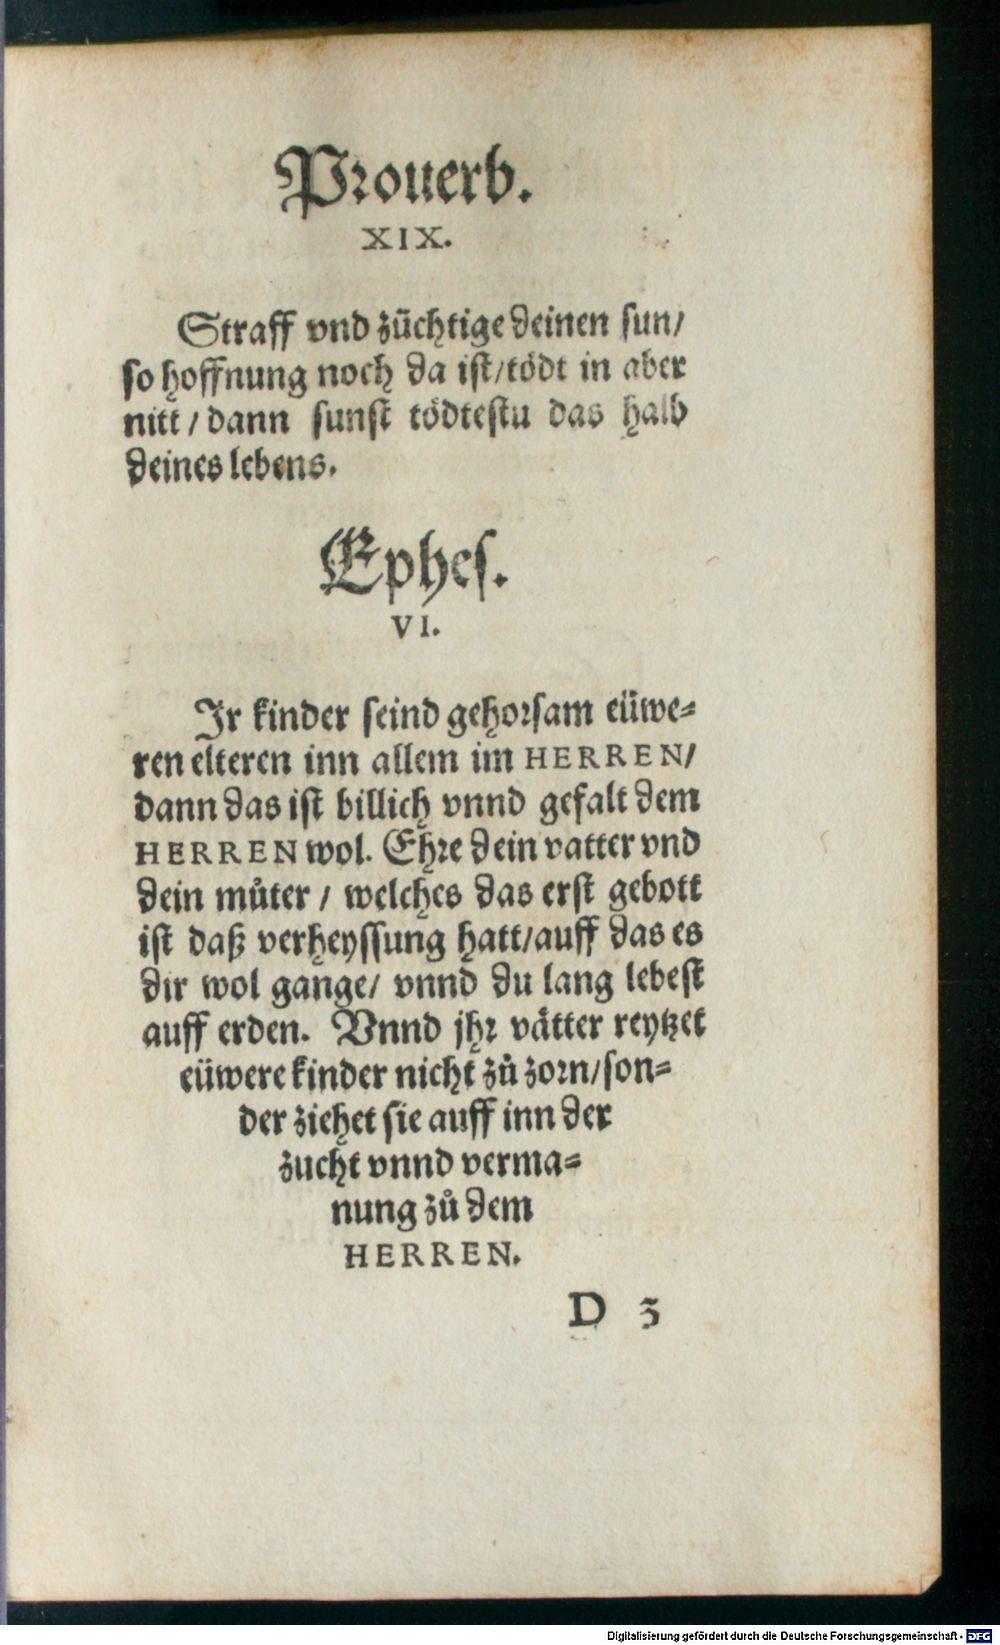 Prouerb.
XIX.
Straff vnd züchtige deinen sun/
so hoffnung noch da ist/tödt in aber
nitt/dann sunst tödtestu das halb
deines lebens.
Ephes.
VI.
Ir kinder seind gehorsam eüwe⸗
ren elteren inn allem im HERREN/
dann das ist billich vnnd gefalt dem
HERREN wol. Ehre dein vatter vnd
dein můter / welches das erst gebott
ist daß verheyssung hatt/auff das es
dir wol gange/ vnnd du lang lebest
auff erden. Vnnd jhr vätter reytzet
eüwere kinder nicht zů zorn/son⸗
der ziehet sie auff inn der
zucht vnnd verma⸗
nung zů dem
HERREN.
D 3
Digitalisierung gefördert durch die Deutsche Forschungsgemeinschaft - DFG